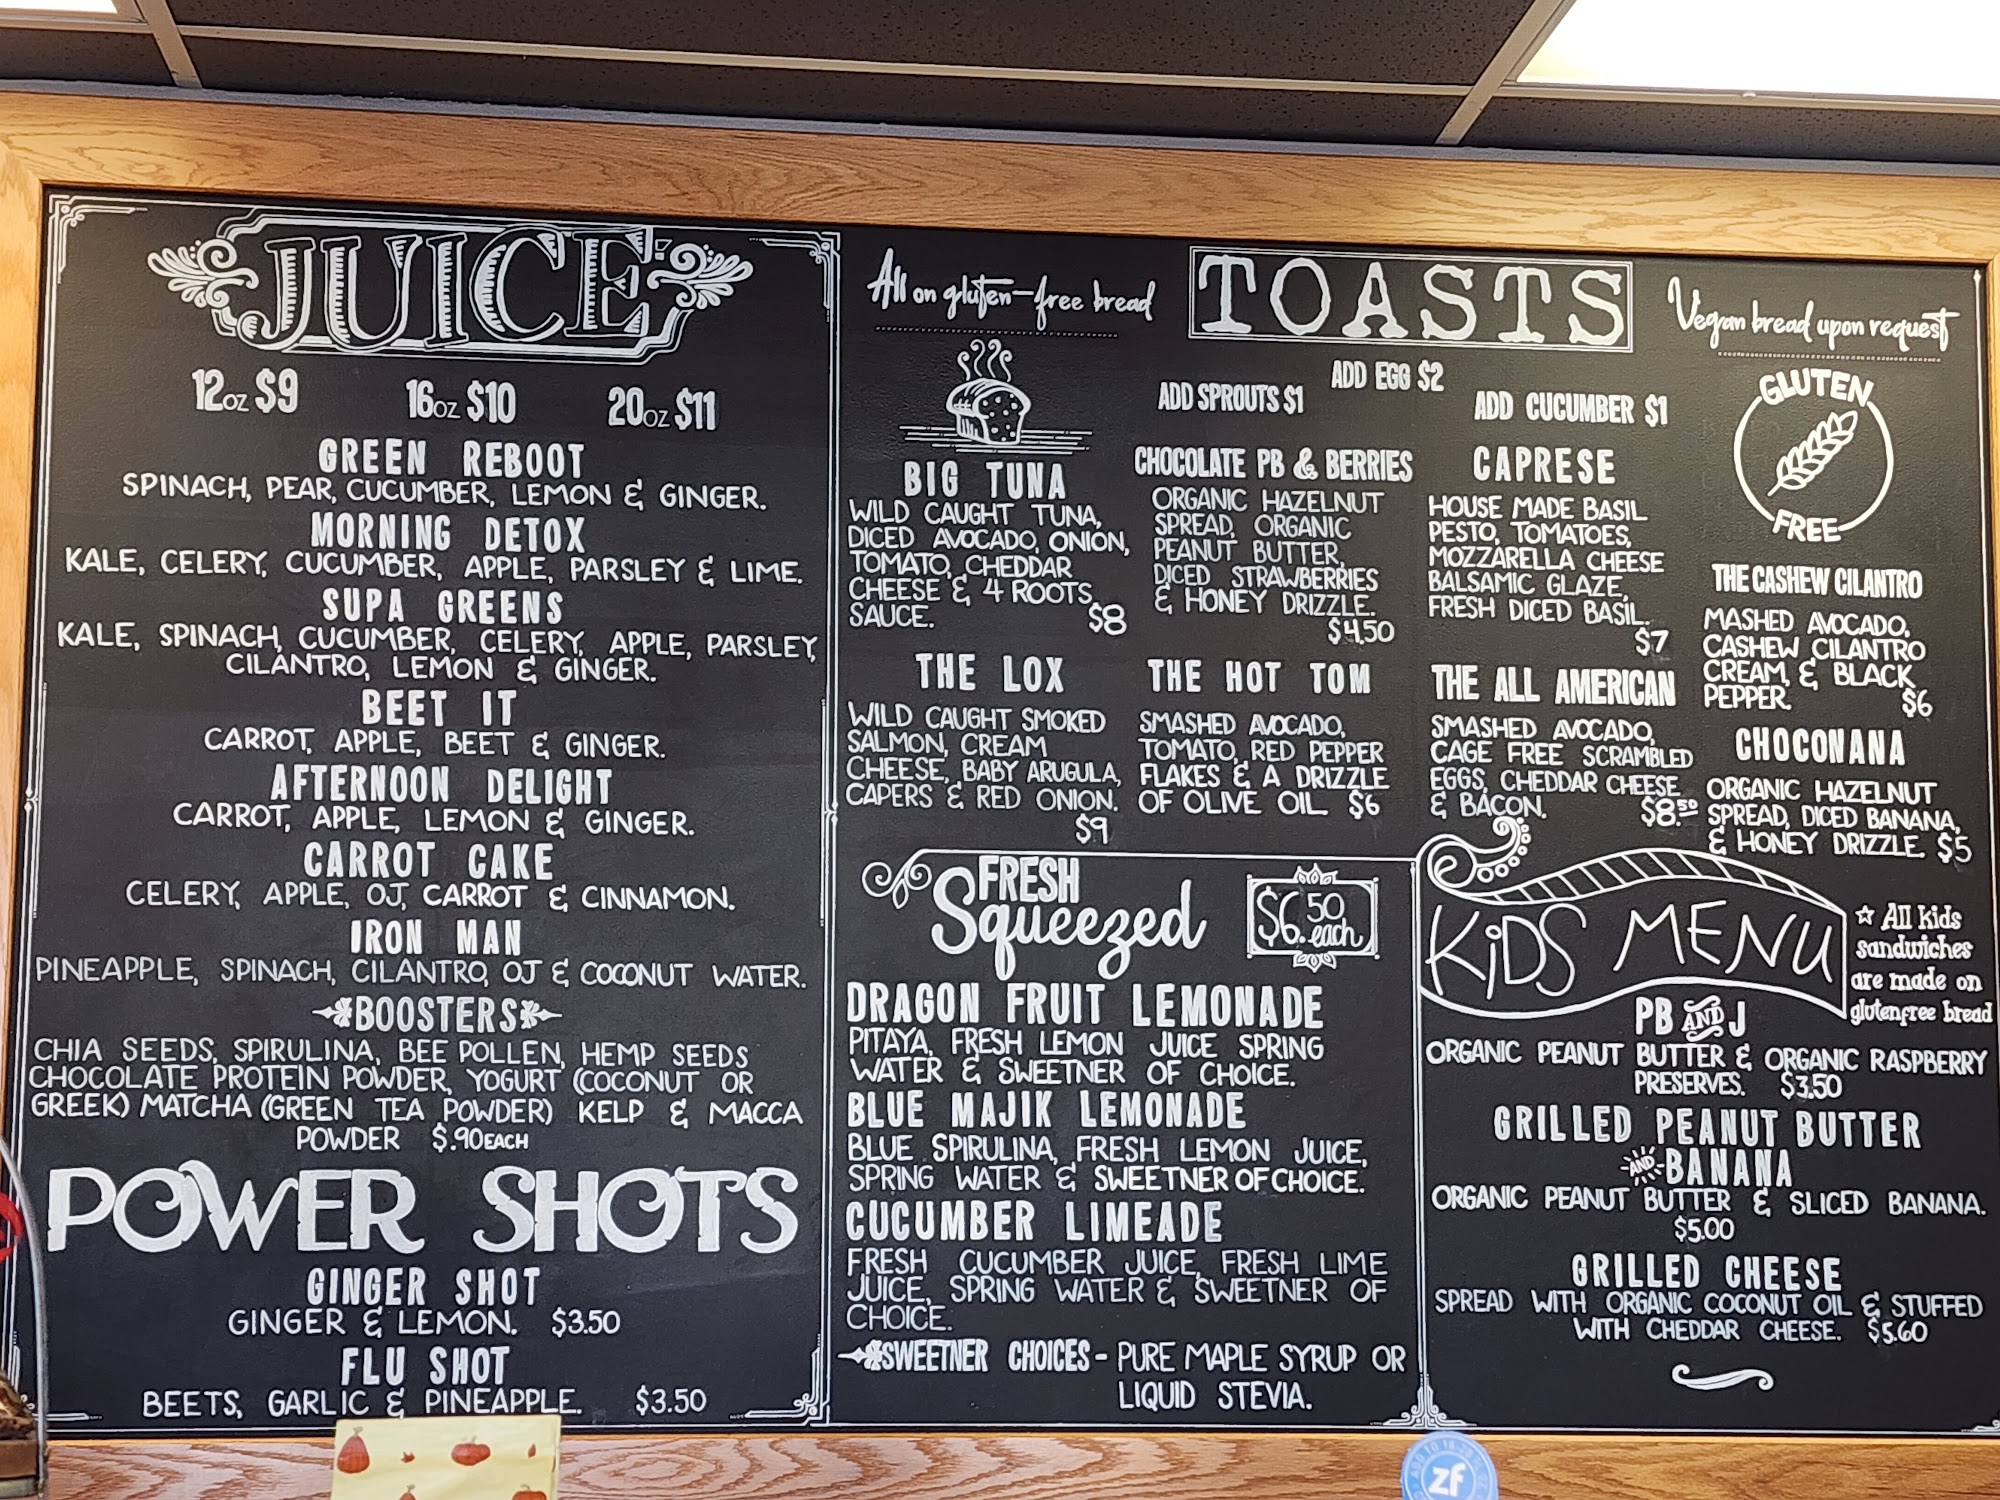 JUICE
12oz $9 16oz $10 20oz $11
GREEN REBOOT
SPINACH, PEAR, CUCUMBER, LEMON & GINGER.
MORNING DETOX
KALE, CELERY, CUCUMBER, APPLE, PARSLEY & LIME.
SUPA GREENS
KALE, SPINACH, CUCUMBER, CELERY, APPLE, PARSLEY,
CILANTRO, LEMON & GINGER.
BEET IT
CARROT, APPLE, BEET & GINGER.
AFTERNOON DELIGHT
CARROT, APPLE, LEMON & GINGER.
CARROT CAKE
CELERY, APPLE, OJ, CARROT & CINNAMON.
IRON MAN
PINEAPPLE, SPINACH, CILANTRO, OJ & COCONUT WATER.
BOOSTERS
CHIA SEEDS, SPIRULINA, BEE POLLEN, HEMP SEEDS
CHOCOLATE PROTEIN POWDER, YOGURT (COCONUT OR
GREEK) MATCHA (GREEN TEA POWDER) KELP & MACCA
POWDER $.90 EACH
POWER SHOTS
GINGER SHOT
GINGER & LEMON. $3.50
FLU SHOT
BEETS, GARLIC & PINEAPPLE. $3.50
All on gluten-free bread
TOASTS
Vegan bread upon request
ADD SPROUTS $1
ADD EGG $2
ADD CUCUMBER $1
GLUTEN
FREE
BIG TUNA
WILD CAUGHT TUNA,
DICED AVOCADO, ONION,
TOMATO, CHEDDAR
CHEESE & 4 ROOTS
SAUCE. $8
CHOCOLATE PB & BERRIES
ORGANIC HAZELNUT
SPREAD, ORGANIC
PEANUT BUTTER,
DICED STRAWBERRIES
& HONEY DRIZZLE.
$4.50
CAPRESE
HOUSE MADE BASIL
PESTO, TOMATOES,
MOZZARELLA CHEESE
BALSAMIC GLAZE,
FRESH DICED BASIL.
$7
THE CASHEW CILANTRO
MASHED AVOCADO,
CASHEW CILANTRO
CREAM, & BLACK
PEPPER. $6
THE LOX
WILD CAUGHT SMOKED
SALMON, CREAM
CHEESE, BABY ARUGULA,
CAPERS & RED ONION.
$9
THE HOT TOM
SMASHED AVOCADO,
TOMATO, RED PEPPER
FLAKES & A DRIZZLE
OF OLIVE OIL $6
THE ALL AMERICAN
SMASHED AVOCADO,
CAGE FREE SCRAMBLED
EGGS, CHEDDAR CHEESE
& BACON. $8.50
CHOCONANA
ORGANIC HAZELNUT
SPREAD, DICED BANANA,
& HONEY DRIZZLE. $5
FRESH
Squeezed
$6.50
each
DRAGON FRUIT LEMONADE
PITAYA, FRESH LEMON JUICE SPRING
WATER & SWEETNER OF CHOICE.
BLUE MAJIK LEMONADE
BLUE SPIRULINA, FRESH LEMON JUICE,
SPRING WATER & SWEETNER OF CHOICE.
CUCUMBER LIMEADE
FRESH CUCUMBER JUICE, FRESH LIME
JUICE, SPRING WATER & SWEETNER OF
CHOICE.
SWEETNER CHOICES - PURE MAPLE SYRUP OR
LIQUID STEVIA.
KiDS MENU
☆ All kids
sandwiches
are made on
glutenfree bread
PB AND J
ORGANIC PEANUT BUTTER & ORGANIC RASPBERRY
PRESERVES. $3.50
GRILLED PEANUT BUTTER
AND BANANA
ORGANIC PEANUT BUTTER & SLICED BANANA.
$5.00
GRILLED CHEESE
SPREAD WITH ORGANIC COCONUT OIL & STUFFED
WITH CHEDDAR CHEESE. $5.60
zf